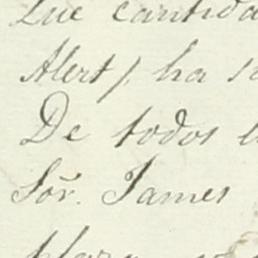 que cantida
Alert), ha s
De todos l
Sõr. James